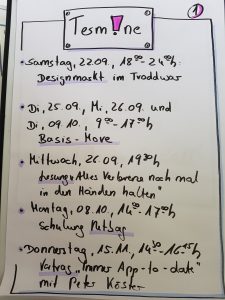 Term!ne
1
• Samstag, 22.09., 18⁰⁰-24⁰⁰h
Designmarkt im
• Di, 25.09., Mi, 26.09. und
Di, 09.10., 9⁰⁰-17⁰⁰h
Basis-Move
• Mittwoch, 26.09, 19³⁰h
Lesung "Alles Verbrene noch mal
in den Händen halten"
• Montag, 08.10, 14³⁰-17⁰⁰h
Schulung
Donnerstag, 15.11., 14³⁰-16⁴⁵h
Vortrag "Immer App-to-date"
mit Peter Köster